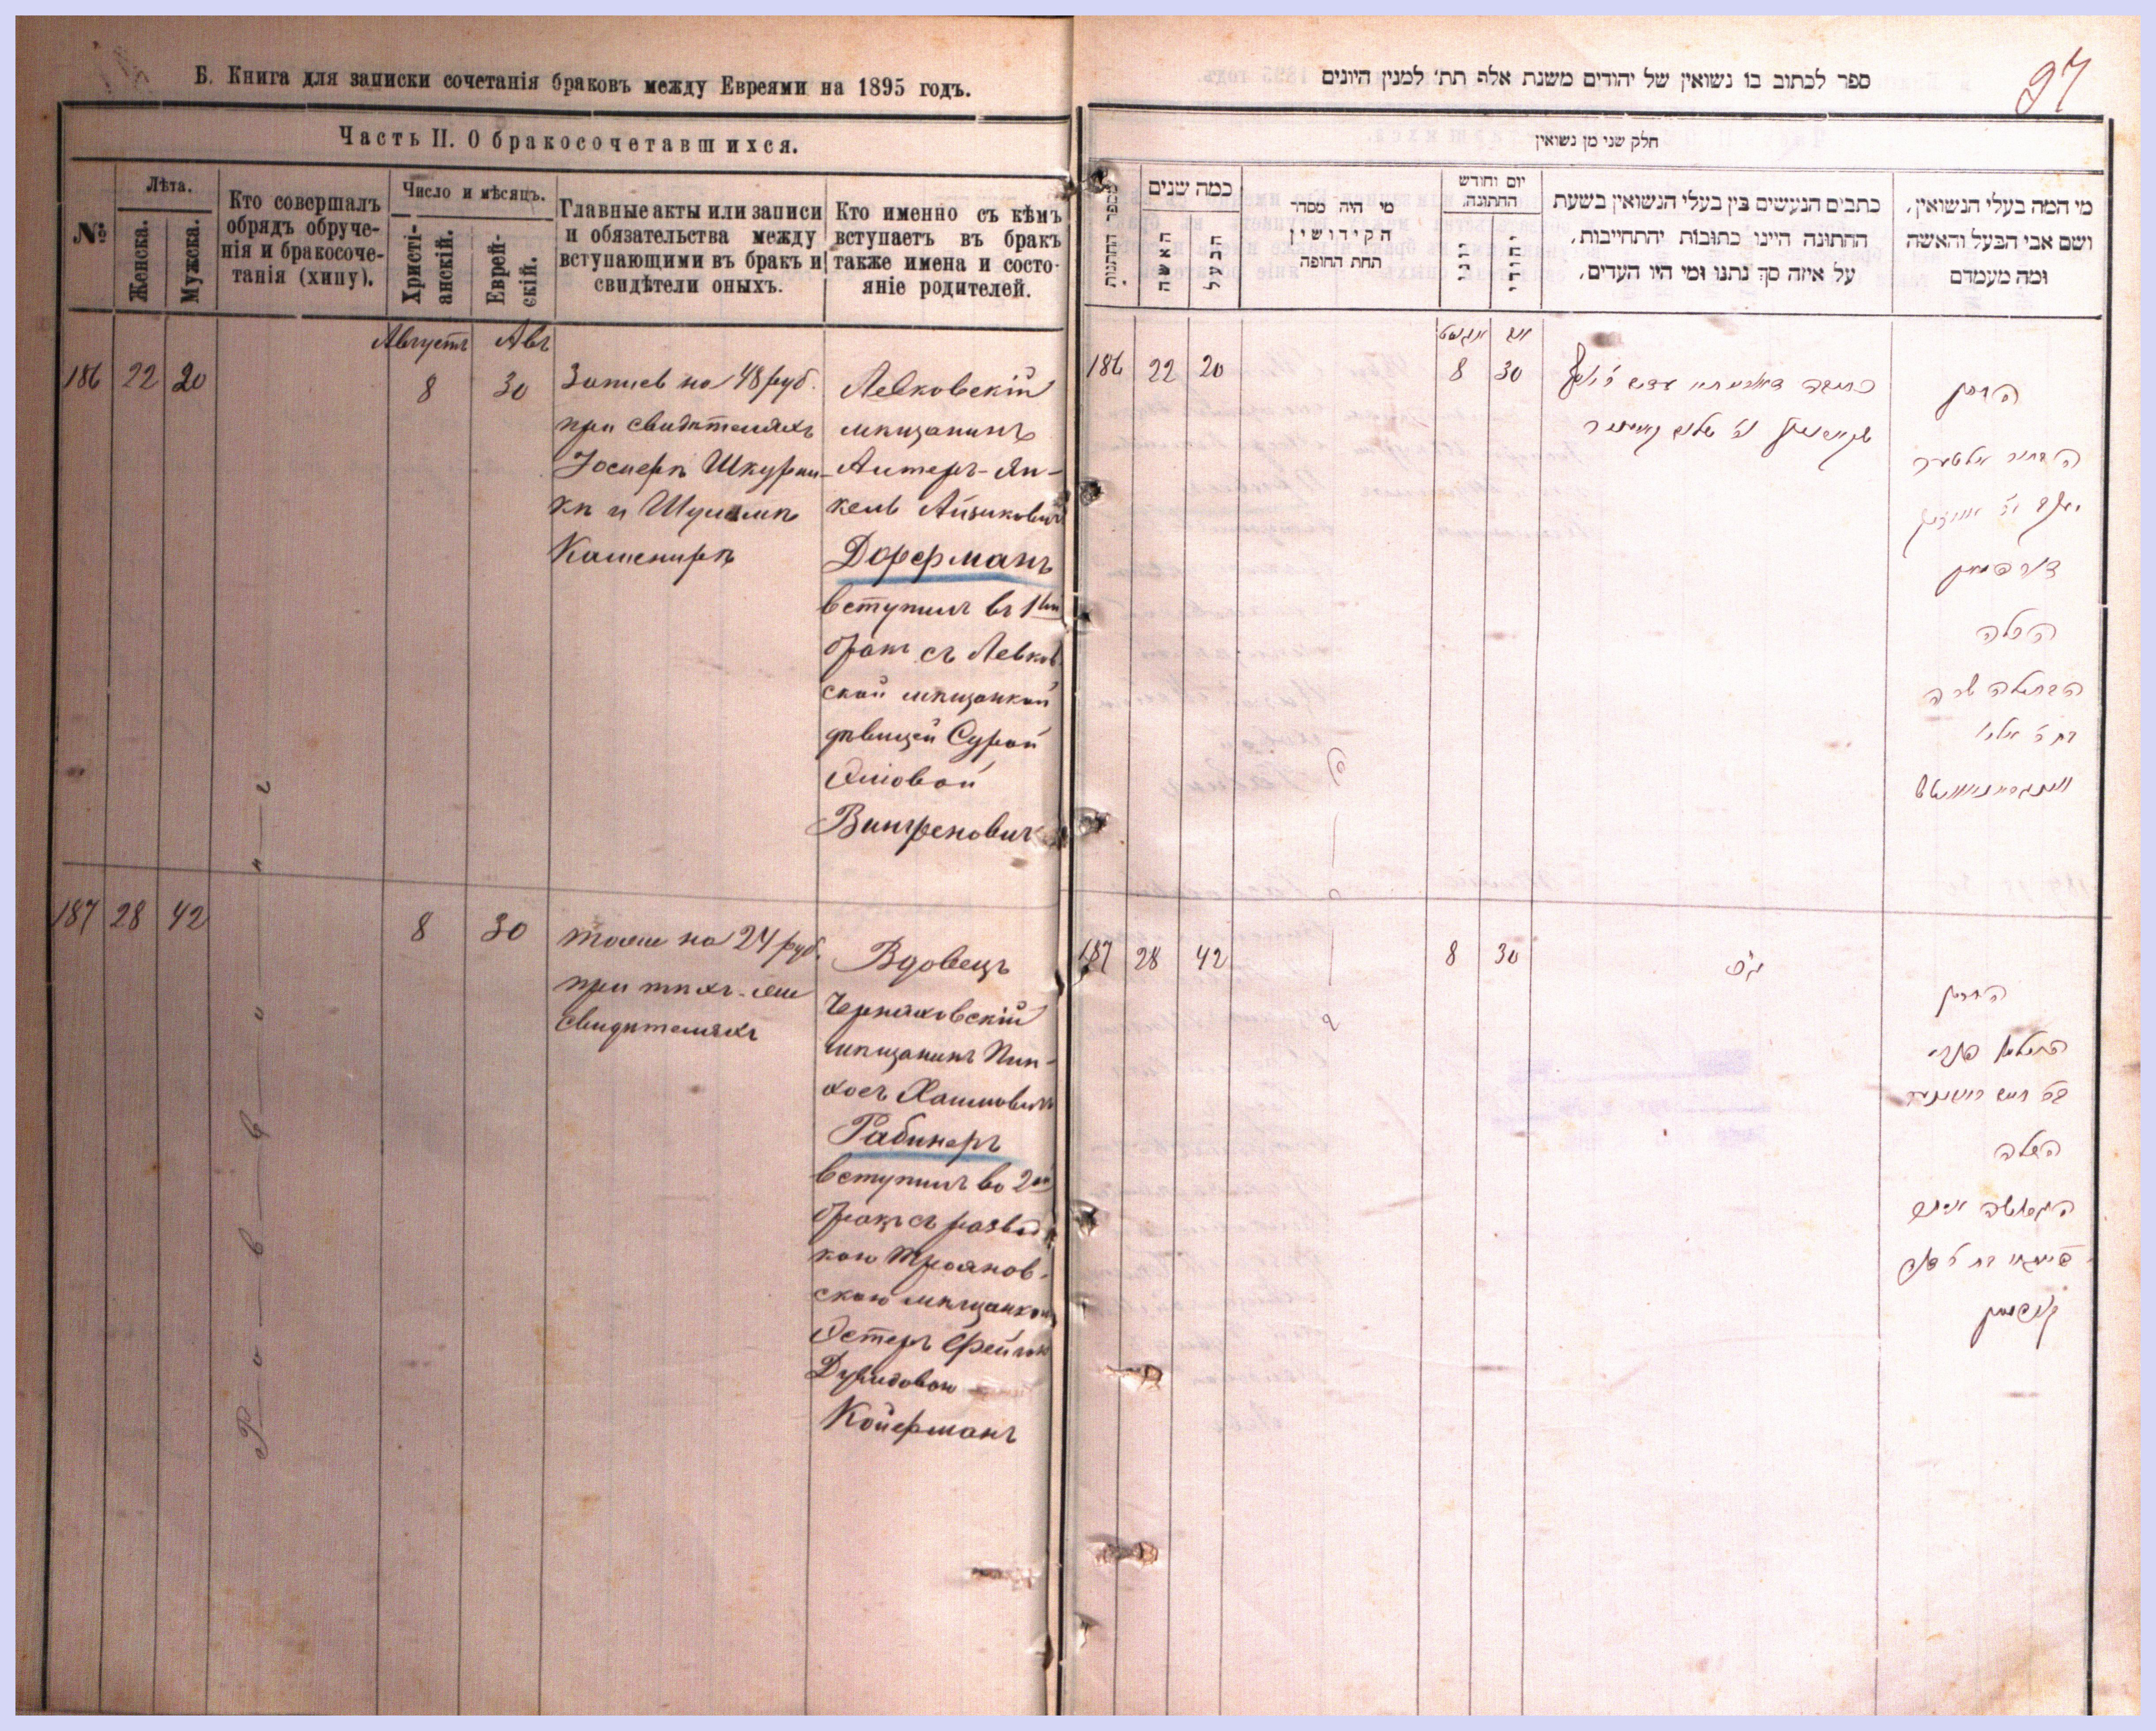 Б. Книга для записки сочетанія браковъ между Евреями на 1895 годъ.
Часть II. О бракосочетавшихся.
№
Лѣта.
Женска.
Мужска.
Кто совершалъ
обрядъ обруче-
нія и бракосоче-
танія (хипу).
Число и мѣсяцъ.
Христі-
анскій.
Еврей-
скій.
Главные акты или записи
и обязательства между
вступающими въ бракъ и
свидѣтели оныхъ.
Кто именно съ кѣмъ
вступаетъ въ бракъ
также имена и состо-
яніе родителей.
Августъ Авъ
186 22 20 8 30
Запись на 48 руб.
при свидѣтеляхъ
Іосифѣ Шкурни-
кѣ и Шулимѣ
Кашенирѣ
Левковскій
мѣщанинъ
Алтеръ-Ян-
кель Айзиковичъ
Дорфманъ
вступилъ въ 1ый
бракъ съ Левков
ской мѣщанкой
дѣвицей Сурой
Эліовой
Вингреновичъ
Р-а-в-в-и-н-ъ
187 28 42 8 30
тоже на 24 руб.
при тѣхъ-же
свидѣтеляхъ
Вдовецъ
Черняховскій
мѣщанинъ Пин-
хосъ Хаимовичъ
Рабинеръ
вступилъ во 2ой
бракъ съ развод
кою Трояновъ-
скою мѣщанкою
Эстеръ Фейгою
Дувидовою
Койфманъ
97
ספר לכתוב בו נשואין של יהודים משנת אלף תת׳ למנין היונים
חלק שני מן נשואין
מספר החתונות
כמה שנים
האשה
הבעל
מי היה מסדר
הקידושין
תחת החופה
יום וחודש
החתונה.
יוני
יהודי
כתבים הנעשים בין בעלי הנשואין בשעת
החתונה היינו כתובות יהתחייבות,
על איזה סך נתנו ומי היו העדים,
מי המה בעלי הנשואין,
ושם אבי הבעל והאשה
ומה מעמדם
אויגוסט אב
186 22 20 8 30
החתן
הבחור אלטער
יעקב
דורפמאן
הכלה
הבתולה שרה
בת ר׳ אליו
187 28 42 8 30
החתן
הכלה
קויפמאן